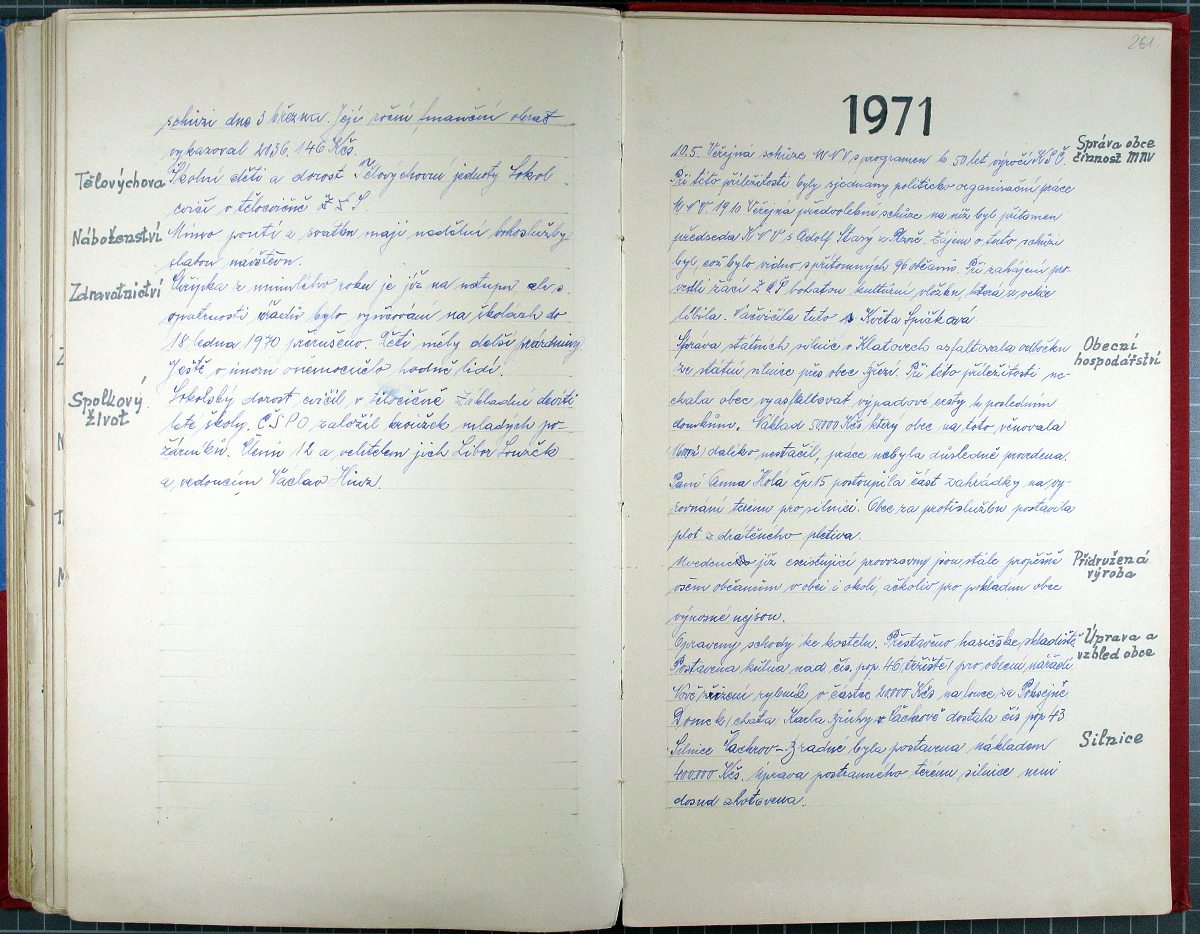 schůzi dne 3 března. Její roční finanční obrat
vykazoval 2036.146 Kčs.
Tělovýchova
Školní děti a dorost Tělovýchovné jednoty Sokol
cvičí v tělocvičně Z Š.
Náboženství
Mimo poutí a svátku mají nedělní bohoslužby
slabou návštěvu.
Zdravotnictví
Chřipka z minulého roku je již na ústupu ale z
opatrnosti bylo vyučování na školách do
18 ledna 1970 přerušeno. Děti měly další prázdniny
Ještě v únoru onemocnělo hodně lidí.
Spolkový
život
Sokolský dorost cvičil v tělocičně Základní devíti
leté školy. ČSPO založil kroužek mladých po-
žárníků. Členů 12 a velitelem jich Libor Souček
a vedoucím Václav Hinz.
261
1971
Správa obce
činnost MNV
10.5. Veřejná schůze MNV s programem k 50 let. výročí KSČ.
Při této příležitosti byly sjednány politicko organisační práce
MNV. 19.10 Veřejná předvolební schůze na níž byl přítomen
předseda KNV s Adolf Starý z Plzně. Zájem o tuto schůzi
byl, což bylo vidno s přítomných 96 občanů. Při zahájení pro-
vedli žáci ZDŠ bohatou kulturní vložku, která se velice
líbila. Nacvičila tuto s Květa Špičáková
Obecní
hospodářství
Správa státních silnic v Klatovech asfaltovala odbočku
ze státní silnice přes obec Březí. Při této příležitosti ne-
chala obec vyasfaltovat výpadové cesty k posledním
domkům. Náklad 50000 Kčs který obec na toto věnovala
daleko nestačil, práce nebyla důsledně provedena.
Paní Anna Holá čp 15 postoupila část zahrádky na vy-
rovnání terénu pro silnici. Obec za protislužbu postavila
plot z drátěného pletiva.
Přidružená
výroba
Uvedené již existující provozovny jsou stále prospěšné
všem občanům v obci i okolí, ačkoliv pro pokladnu obce
výnosné nejsou.
Úprava a
vzhled obce
Opraveny schody ke kostelu. Přestavěno hasičské skladiště
Postavena kůlna nad čís. pop. 46 (Tržiště) pro obecní nářadí
Nově zřízení rybníka o částce 20.000 Kčs na louce za
Domek /chata Karla v Čachrově dostala čís pop 43.
Silnice
Silnice Čachrov-Zradné byla postavena nákladem
400.000 Kčs. Úprava postranného terénu silnice není
dosud zhotovena.